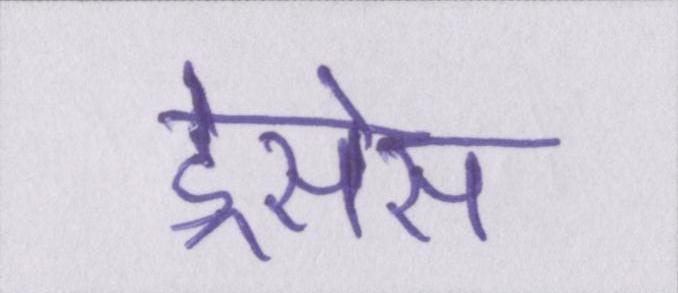 ड्रेसेस